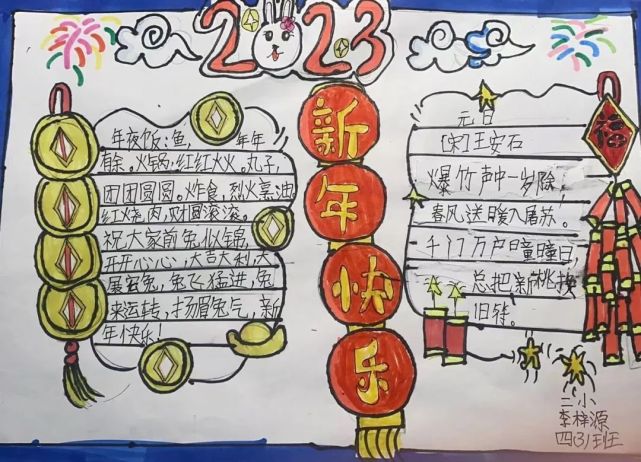 2023
年夜饭：鱼， 年年
有余。火锅，红红火火。丸子，
团团圆圆。炸食，烈火烹油
红烧肉，财圆滚滚。
祝大家前兔似锦，
开开心心，大吉大利，大
展宏兔，兔飞猛进，兔
来运转，扬眉兔气，新
年快乐！
新
年
快
乐
元日
[宋]王安石
爆竹声中一岁除，
春风送暖入屠苏。
千门万户曈曈日，
总把新桃换
旧符。
福
二小
李梓源
四(3)班